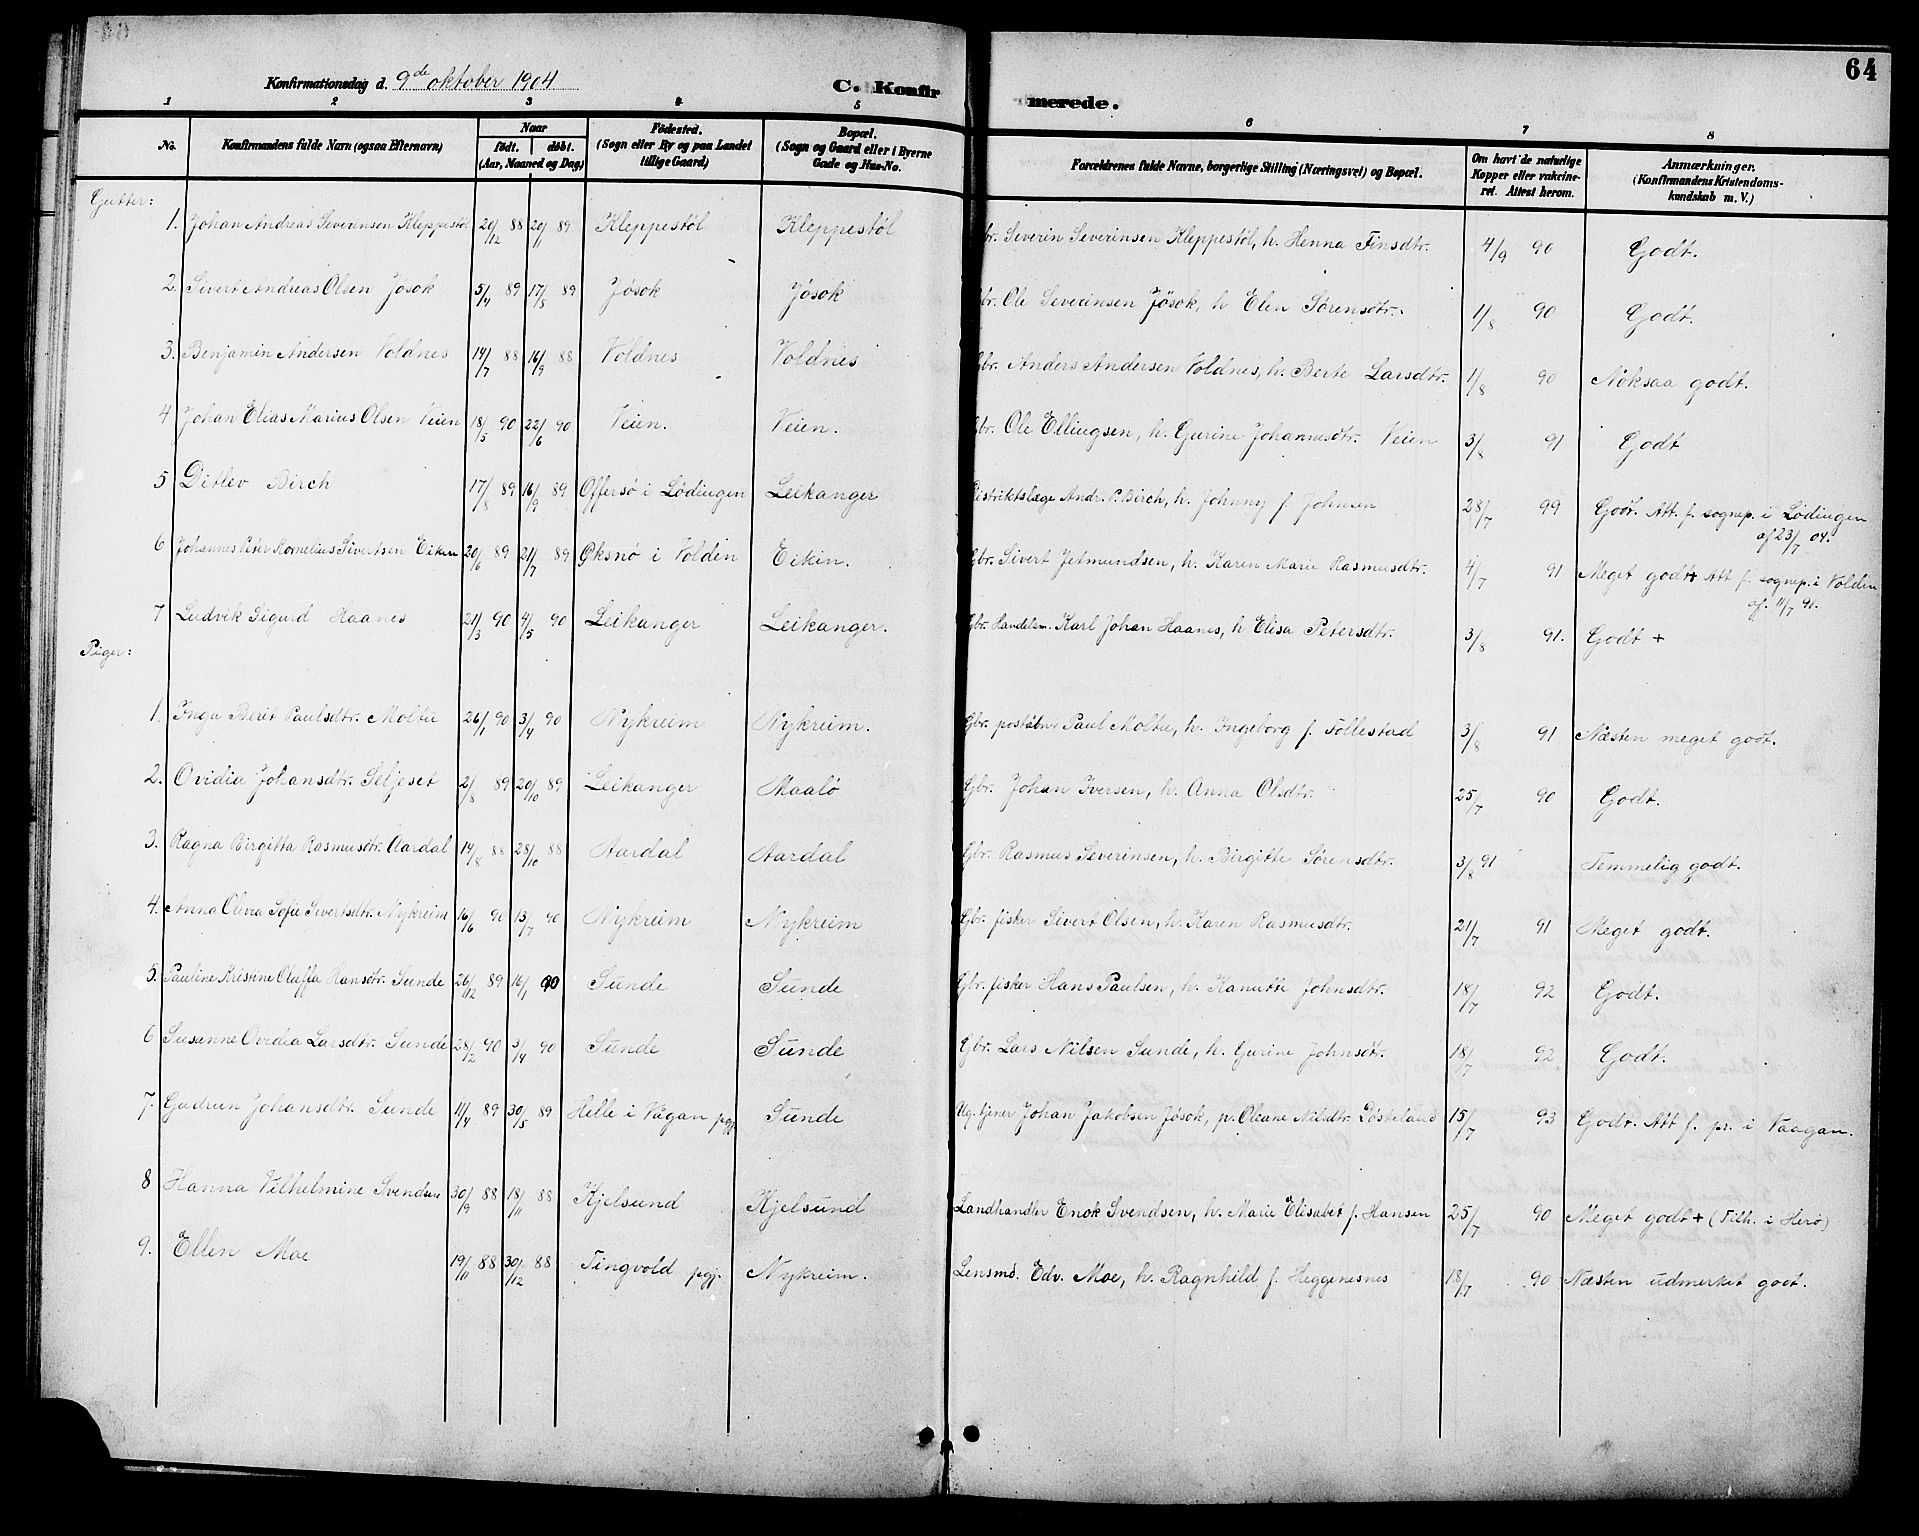 64
Konfirmationsdag d. 9de oktober 1904
C. Konfirmerede.
1 2 3 4 5 6 7 8
No. Konfirmandens fulde Navn (ogsaa Efternavn) Naar født. døbt. (Aar, Maaned og Dag) Fødested. (Sogn eller By og paa Landet tillige Gaard) Bopæl. (Sogn og Gaard eller i Byerne Gade og Hus-No. Forældrenes fulde Navne, borgerlige Stilling (Næringsvei) og Bopæl. Om havt de naturlige Kopper eller vakcineret. Attest herom. Anmærkninger. (Konfirmandens Kristendomskundskab m. V.)
Gutter:
1. Johan Andreas Severinsen Kleppestøl 20/12 88 20/1 89 Kleppestøl Kleppestøl Gbr. Severin Severinsen Kleppestøl, h. Henna Finsdtr. 4/9 90 Godt.
2. Sivert Andreas Olsen Jøsok 5/4 89 17/5 89 Jøsok Jøsok Gbr. Ole Severinsen Jøsok, h Elen Sørensdtr. 1/8 90 Godt.
3. Benjamin Andersen Voldnes 14/7 88 16/9 88 Voldnes Voldnes Gbr. Anders Andersen Voldnes, h. Berte Larsdtr. 1/8 90 Noksaa godt.
4 Johan Elias Marius Olsen Veien 18/5 90 22/6 90 Veien. Veien. Gbr. Ole Ellingsen, h. Gurine Johannesdtr. Veien 3/8 91 Godt
5 Ditlev Birch 17/8 89 16/9 89 Offersø i Lødingen Leikanger Distriktslæge Andr. P. Birch, h. Johnny f. Johnsen 28/7 99 Godt. Att. f. sognep. i Lødingen
af 23/7 04.
6 Johannes Peter Kornelius Sivertsen Eikin 20/6 89 21/7 89 Øksnø i Volden Eikin. Gbr. Sivert Jetmundsen, h. Karen Marie Rasmusdtr. 4/7 91 Meget godt + Att f. sognep. i Volden
af. 11/7 91.
7 Ludvik Sigurd Haanes 21/3 90 4/5 90 Leikanger Leikanger. Gbr. Handelsm. Karl Johan Haanes, h Elisa Petersdtr. 3/8 91. Godt +
Piger:
1. Inga Berit Paulsdtr. Moltu 26/1 90 3/4 90 Nykreim Nykreim. Gbr. poståbner Paul Moltu, h. Ingeborg f. Follestad 3/8 91 Næsten meget godt.
2. Ovidia Johansdtr. Seljeset 2/8 89 20/10 89 Leikanger Maalø Gbr. Johan Iversen, h. Anna Olsdtr. 25/7 90 Godt.
3. Ragna Birgitta Rasmusdtr. Aardal 14/8 88 28/10 88 Aardal Aardal Gbr. Rasmus Severinsen, h. Birgitte Sørensdtr. 3/8 91 Temmelig godt.
4. Anna Olivia Sofie Sivertsdtr. Nykreim 16/6 90 13/7 90 Nykreim Nykreim Gbr. fisker Sivert Olsen, h. Karen Rasmusdtr. 21/7 91 Meget godt.
5. Pauline Kristine Oluffa Hansdtr. Sunde 26/12 89 16/1 90 Sunde Sunde Gbr. fisker Hans Paulsen, h. Kanutte Johnsdtr. 18/7 92 Godt.
6 Susanne Ovidia Larsdtr. Sunde 28/2 90 5/4 90 Sunde Sunde Gbr. Lars Nilsen Sunde, h. Gurine Johnsdtr. 18/7 92 Godt.
7. Gudrun Johansdtr. Sunde 11/4 89 30/5 89 Helle i Vågan pgj. Sunde Ug. tjener Johan Jakobsen Jøsok, p. Oleane Nilsdtr. 15/7 93 Godt. Att f. pr. i Vaagan.
8 Hanna Vilhelmine Svendsen 30/9 88 18/11 88 Kjelsund Kjelsund Landhandler Enok Svendsen, h. Marie Elisabet f. Hansen 25/7 90 Meget godt + (Tilh. i Herø)
9. Ellen Moe 19/11 88 30/12 88 Tingvold pgj. Nykreim. Lensmd. Edv. Moe, h. Ragnhild f. Heggenesnes 18/7 90 Næsten udmerket godt.